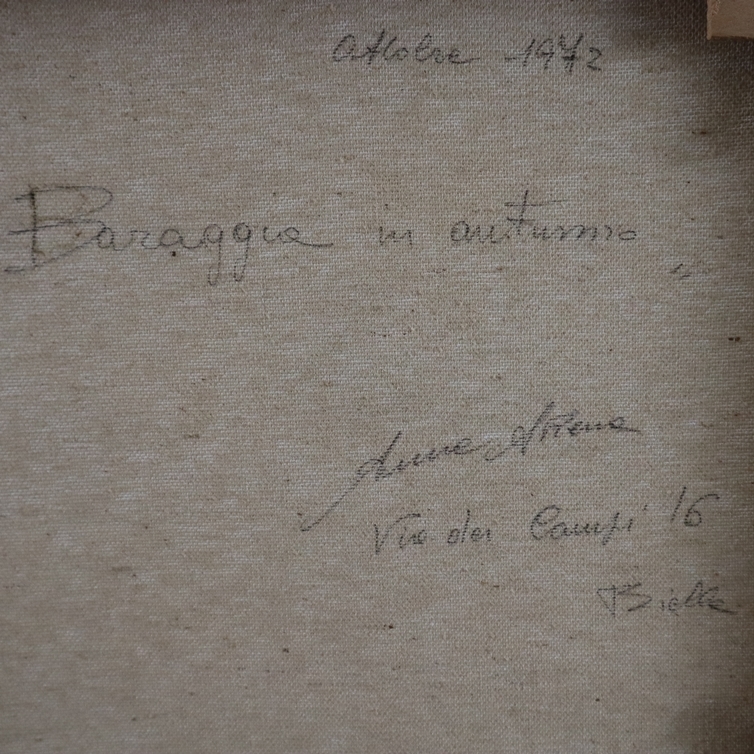 Ottobre 1972
Baraggia in autunno "
Anna
Via dei Campi 16
Biella